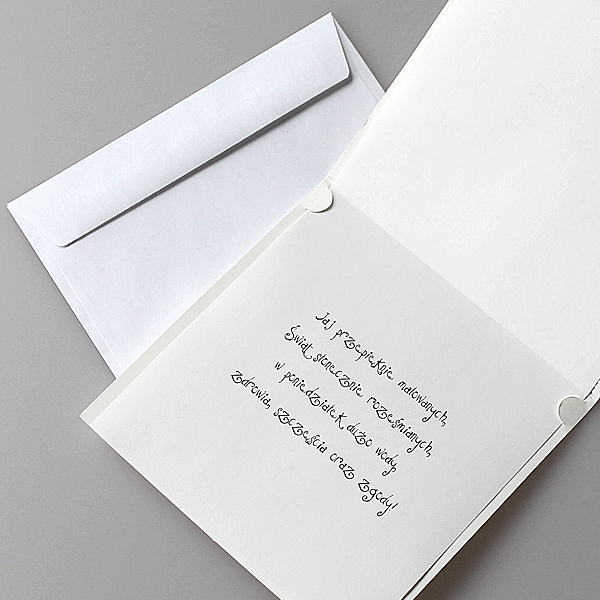 Jaj przepięknie malowanych,
Świąt słonecznie roześmianych,
w poniedziałek dużo wody,
zdrowia, szczęścia oraz zgody!